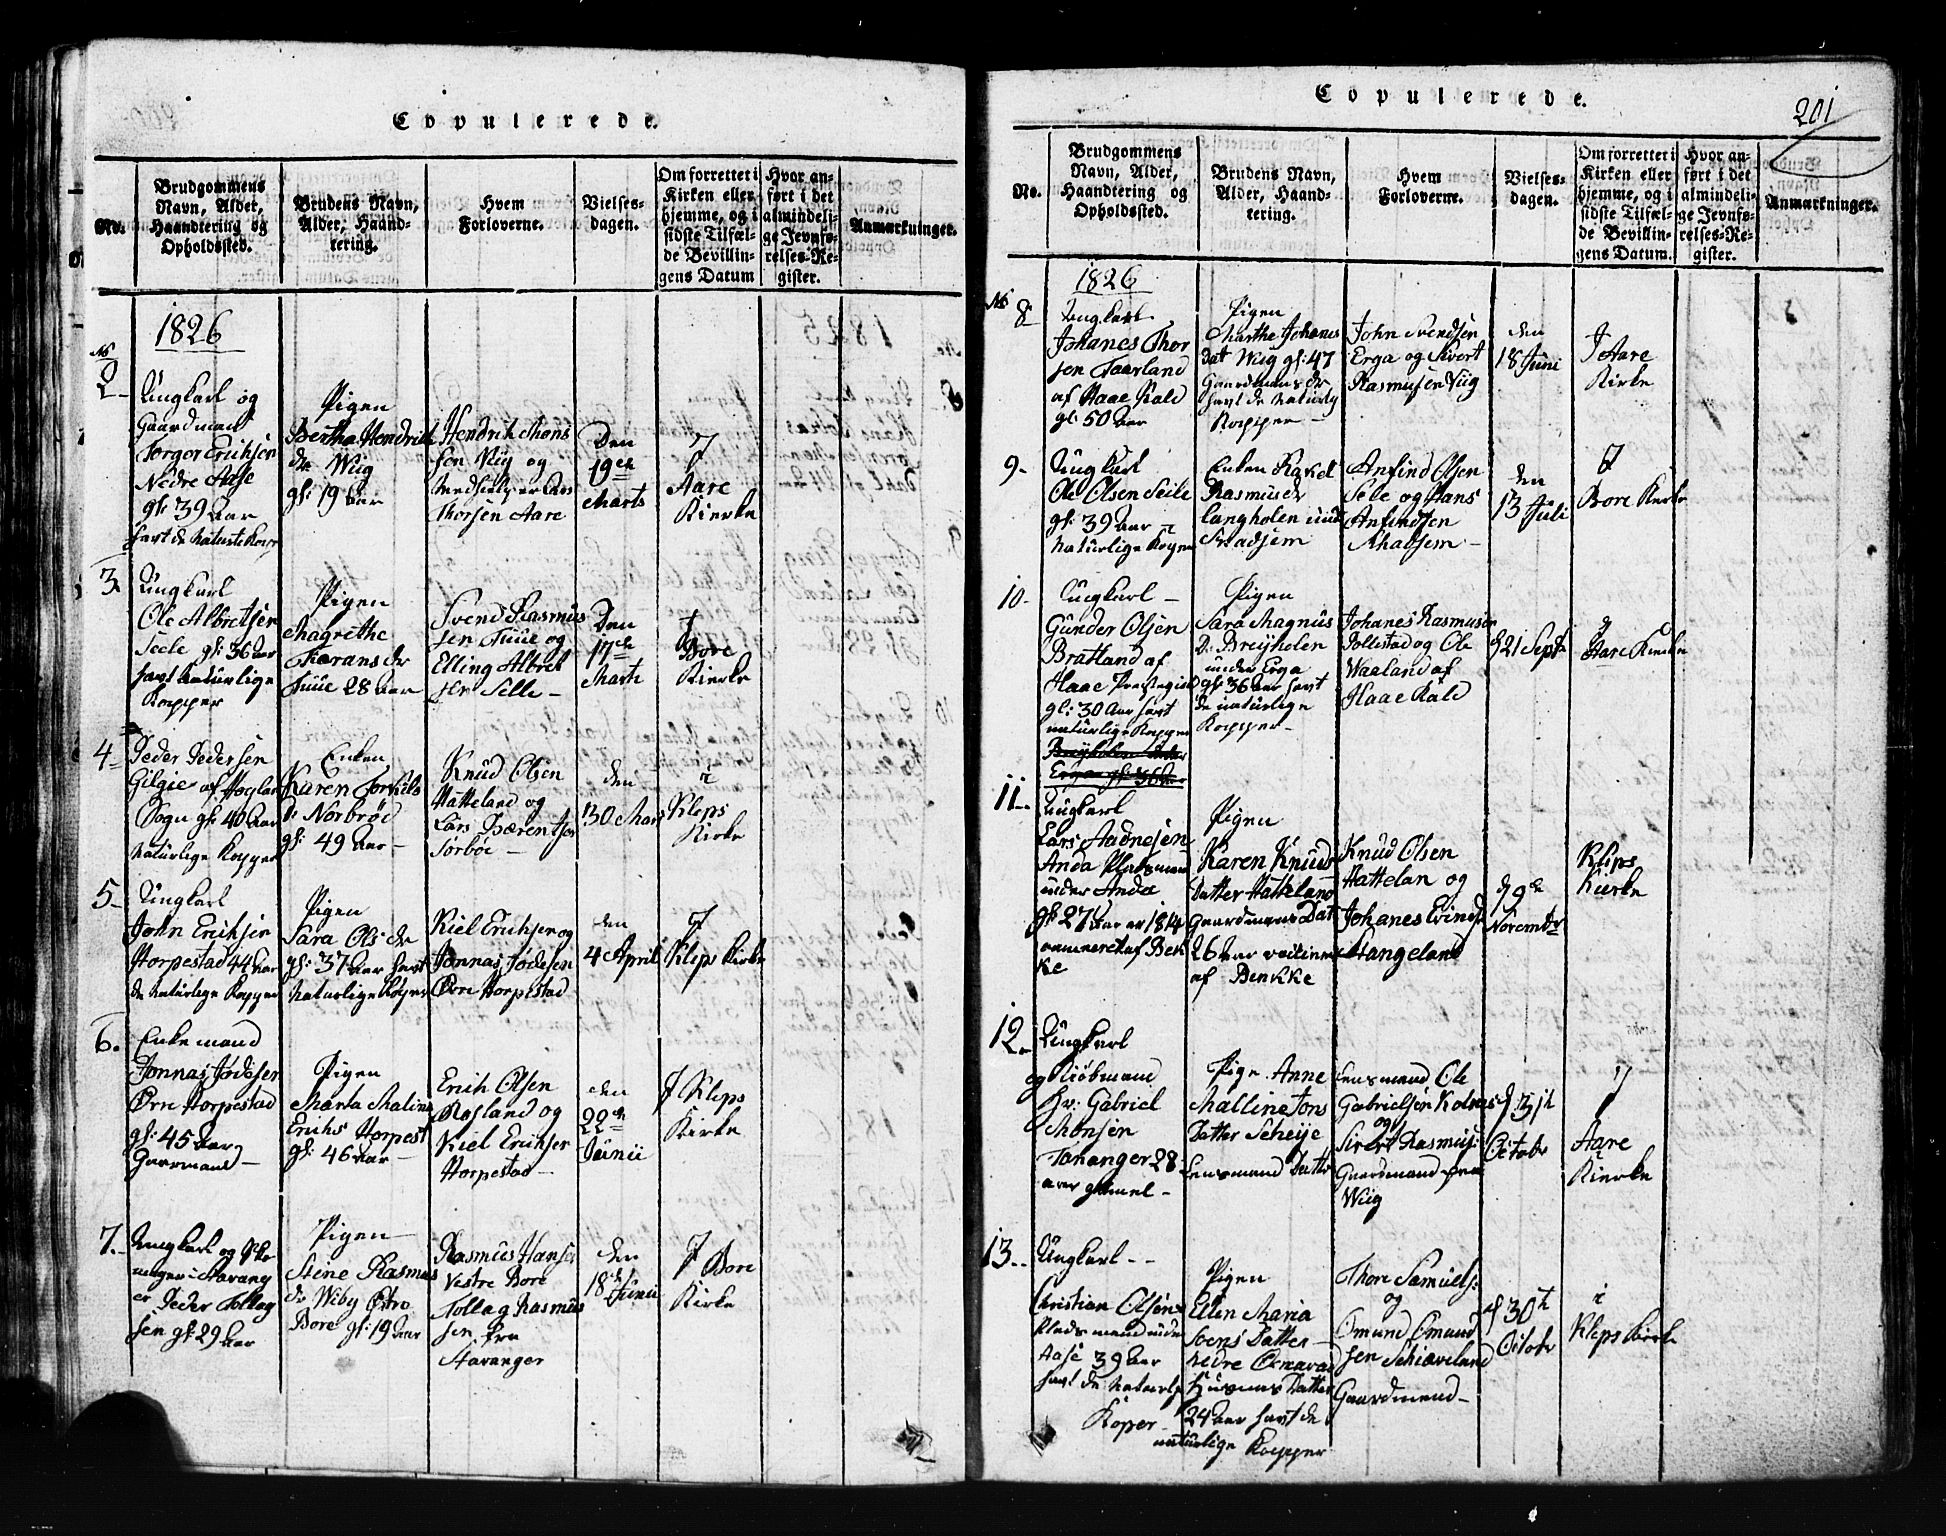 Copulerede.
No.
Brudgommens
Navn, Alder,
Haandtering og
Opholdssted.
Brudens Navn,
Alder, Haand-
tering.
Hvem
Forloverne.
Vielses-
dagen.
Om forrettet i
Kirken eller
hjemme, og i
sidste Tilfæl-
de Bevillin-
gens Datum
Hvor an-
ført i det
almindeli-
ge Jevnfø-
relses-Re-
gister.
Anmærkninger.
1826
No
2
Ungkarl og
Gaardmand
Torger Erichsen
Nedre Aase
gl: 39 Aar
Pigen
Bertha Hendrichs
dr Wiig
gl: 19 Aar
Hendrik Mons
sen Viig og
Thorsen Aare
Den
19de
Marts
J
Aare
Kierke
3
Ungkarl
Ole Albretsen
Seele gl: 36 Aar
havt naturlige
Kopper
Pigen
Magrethe
Tuue 28 aar
Svend Rasmus
sen Tuue og
Elling Albret
sen Selle
Den
17de
Marti
J
Bore
Kierke
4
Peder Pedersen
Gilgie af Høgland
Sogn gl: 40 Aar
Naturlige Kopper
Enken
Karen Torkels
Dr Norbrød
gl: 49 Aar
Knud Olsen
Hatteland og
Lars Bærentsen
Sørbøe
den
30 Mars
i
Kleps
Kirke
5
Ungkarl
John Erichsen
Horpestad 44 Aar
de Naturlige Kopper
Pigen
Sara Ols dr
gl: 37 Aar havt
Naturlige Kopper
Kiel Erichsen og
Jonnas Jodesen
Øvre Horpestad
den
4 April
J
Kleps Kirke
6.
Enkemand
Jonnas Jodesen
Øvre Horpestad
gl: 45 Aar
Gaarmand
Pigen
Marta Malina
Erichs Horpest
gl: 46 aar
Erich Olsen
Rosland og
Kiel Erichsen
Horpestad
den
22de
Junii
J Kleps
Kirke
7.
Ungkarl og
i Stavang
er Peder Tollag
sen gl: 29 Aar
Pigen
Stine Rasmus
dr Wiby Østre
Bore gl: 19 Aar
Rasmus Hansen
Vestre Bore
Tollag Rasmus
sen fra
Stavanger
den
18de Junii
J Bore
Kirke
Copulerede.
201
No.
Brudgommens
Navn, Alder,
Haandtering og
Opholdssted.
Brudens Navn,
Alder, Haand-
tering.
Hvem
Forloverne.
Vielses-
dagen.
Om forrettet i
Kirken eller
hjemme, og i
sidste Tilfæl-
de Bevillin-
gens Datum.
Hvor an-
ført i det
almindeli-
ge Jevnfø-
relses-Re-
gister.
Anmærkninger.
1826
No
8
Ungkarl
Johanes Thor
sen Taarland
af Haae Kald
gl: 50 Aar
Pigen
Marthe Johanes
Dat Wiig gl: 47
Gaardmans dr
havt de naturlig
Kopper
John Svendsen
Erga og Sivert
Rasmusen Viig
den
18 Juni
J Aare
Kirke
9
Ungkarl
Ole Olsen Seile
gl: 39 Aar
Naturlige Kopper
Enken Rakel
Rasmusdr
Langholen und
Skadsem
Anfind Olsen
Sele og Hans
Anfindsen
Skadsem
den
13 Juli
J
Bore Kirke
10
Ungkarl
Gunder Olsen
Bratland af
Haae Prestegield
gl: 30 Aar havt
naturlige Kopper
Breyholen under
Erga gl: 36 Aar
Pigen
Sara Magnus
D: Breyholen
under Erga
gl: 36 Aar havt
de naturlige
Kopper
Johanes Rasmusen
Tollestad og Ole
Waaland af
Haae Kald
d 21 Sept
J
Aare Kirke
11
Ungkarl
Lars Aadnesen
Anda Pladsmand
under Anda
gl: 27 Aar er 1814
vaxineret af Bek
ke
Pigen
Karen Knuds
Datter Hatteland
Gaardmans Dat
26 Aar vaxiner
af Benkke
Knud Olsen
Hattelan og
Johanes Evinds
Hangeland
d 9de
Novembr
Kleps
Kirke
12
Ungkarl
og Kiøbmand
Hr: Gabriel
Monsen
Tananger 28
aar gamel
Pige Anne
Malline Jons
Datter Scheije
Lensmand Datter
Lensmand Ole
Gabrielsen Kolnes
og
Sivert Rasmus:
Gaardmand fra
Wiig
d 31th
Octobr
J
Aare
Kierke
13
Ungkarl
Christian Olsen
Pladsmand under
Aase 39 Aar
havt de naturlig
Koper
Pigen
Ellen Maria
Svens Datter
nedre
Husmans Datter
24 Aar havt de
naturlige Kopper
Thore Samuels:
og
Omund Omund
sen Schiæveland
Gaardmand
d 30th
Octobr
i
Kleps Kirke